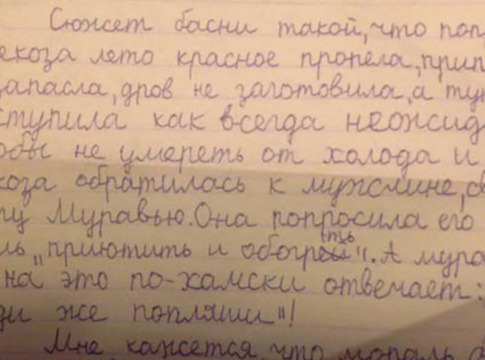 Сюжет басни такой, что поп
екоза лето красное пропела, прип
запасла, дров не заготовила, а ту
ступила как всегда неожид
обы не умереть от холода и
коза обратилась к мужчине, с
ту Муравью. Она попросила его
ль "приютить и обогреть". А мура
на это по-хамски отвечает:
ди же попляши"!
Мне кажется, что мораль